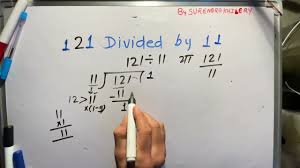 By SURENDRA KHILERY
121 Divided by 11
121÷11 या 121/11
11) 121 (1
12 > 11 - 11
x(1-9) 1
11
x1
11